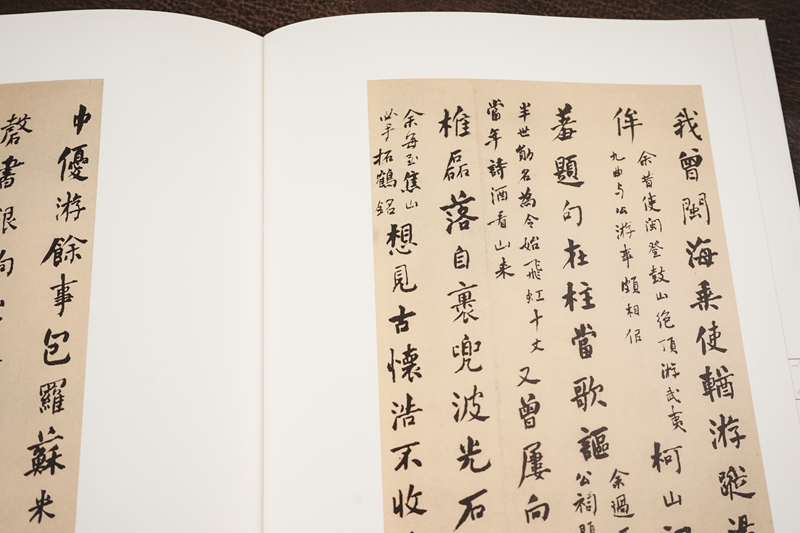 我曾閩海乘使輶游蹤
侔
余昔使閩登鼓山絶頂游武夷
九曲与公游事頗相侣
柯山
蕃題句在柱當歌謳
余過
公祠題
半世勛名為令始飛虹十丈
當年詩酒看山来
又曾屢向
椎磊落自裹兜波光石
余每至焦山
必手拓鶴銘
想見古懷浩不收
中優游餘事包羅蘇米
書